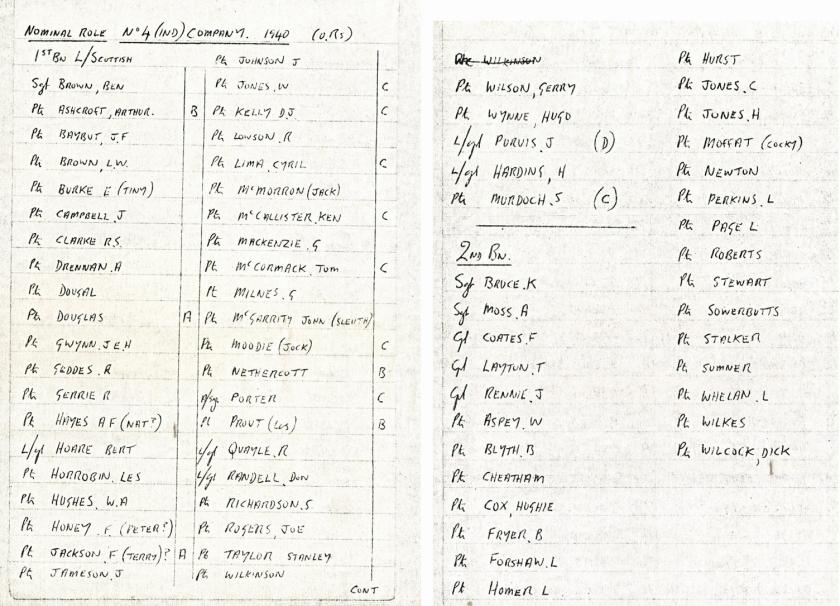 NOMINAL ROLE Nº4 (IND) COMPANY. 1940 (O.RS)
1ST BN L/SCOTTISH
Sgt BROWN, BEN
Pte ASHCROFT, ARTHUR. B
Pte BAYBUT, J.F
Pte BROWN, L.W.
Pte BURKE E (TINY)
Pte CAMPBELL. J
Pte CLARKE R.S.
Pte DRENNAN. A
Pte DOUGAL
Pte DOUGLAS A
Pte GWYNN. J.E.H
Pte GEDDES. R
Pte GERRIE R
Pte HAYES A F (NAT?)
L/Cpl HOARE BERT
Pte HORROBIN. LES
Pte HUGHES. W.A
Pte HONEY. F. (PETER?)
Pte JACKSON. F (TERRY)? A
Pte JAMESON. J
Pte JOHNSON J
Pte JONES. W C
Pte KELLY DJ C
Pte LOWSON. R
Pte LIMA, CYRIL C
Pte McMORRON (JACK)
Pte McCALLISTER. KEN C
Pte MACKENZIE. G
Pte McCORMACK. TOM C
Pte MILNES. G
Pte McGARRITY JOHN (SLEUTH)
Pte MOODIE (JOCK) C
Pte NETHERCOTT B
A/Sgt PORTER C
Pte PROUT (LES) B
L/Cpl QUAYLE. R
L/Cpl RANDELL. DON
Pte RICHARDSON. S.
Pte ROGERS, JOE
Pte TAYLOR STANLEY
Pte WILKINSON
CONT
Pte WILKINSON
Pte WILSON, GERRY
Pte WYNNE, HUGO
L/Cpl PURVIS. J (D)
L/Cpl HARDING, H
Pte MURDOCH. S (C)
2ND BN.
Sgt BRUCE. K
Sgt MOSS. A
Cpl COATES. F
Cpl LAYTON. T
Cpl RENNIE. J
Pte ASPEY. W
Pte BLYTH. B
Pte CHEATHAM
Pte COX, HUGHIE
Pte FRYER. B
Pte FORSHAW. L
Pte HOMER L
Pte HURST
Pte JONES. C
Pte JONES. H
Pte MOFFAT (COCKY)
Pte NEWTON
Pte PERKINS. L
Pte PAGE L
Pte ROBERTS
Pte STEWART
Pte SOWERBUTTS
Pte STALKER
Pte SUMNER
Pte WHELAN. L
Pte WILKES
Pte WILCOCK, DICK